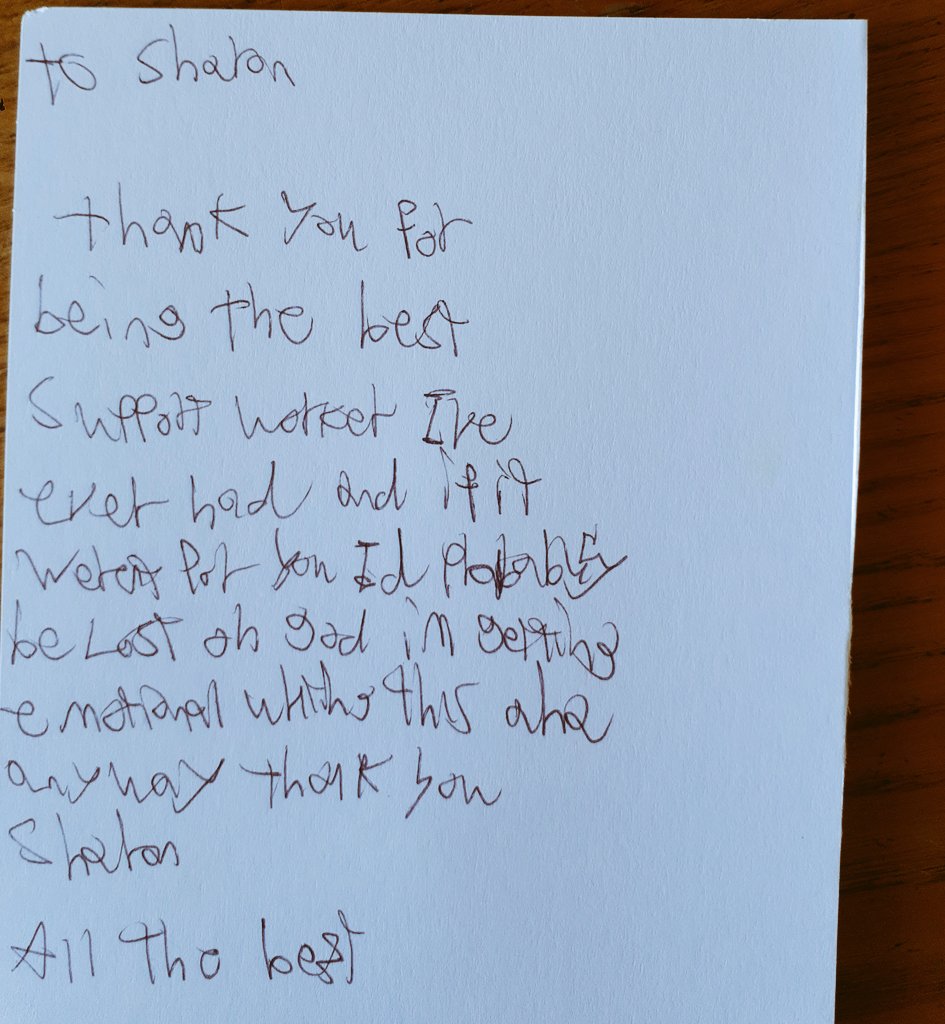 to Sharon
thank you for
being the best
Support worker I've
ever had and if it
weren't for you I'd probably
be Lost oh god i'm getting
emotional writing this aha
anyway thank you
Sharon
All the best